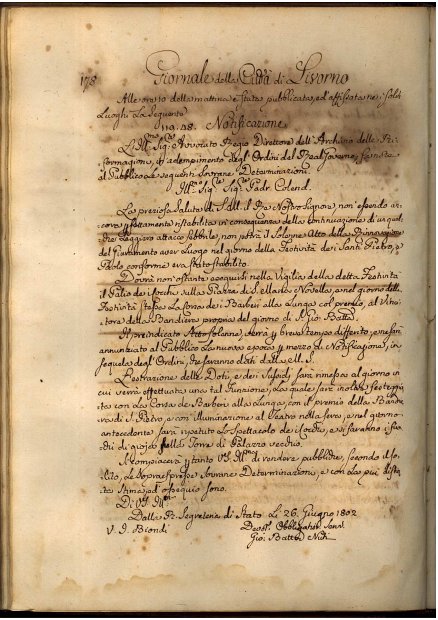 178
Giornale della Città di Livorno
Alle ore 10 della mattina è stata pubblicata, ed affissata nei soliti
Luoghi La Seguente
Notificazione
L'Ill.mo Sig.e Avvocato Regio Direttore dell'Archivio delle Ri-
formagioni, in adempimento degli Ordini del Real Governo, fa noto
al Pubblico Le seguenti Sovrane Determinazioni
Ill.mo Sig.e Sig.e Padr. Colend.
La preziosa Salute di S. M. il Re Nostro Signore, non essendo an-
cora perfettamente ristabilita in conseguenza della continuazione di un qual-
che Leggiero attacco febbrile, non potrà il Solenne Atto della
del Giuramento aver Luogo nel giorno della Festività dei Santi Pietro, e
Paolo conforme era stato stabilito.
Dovrà non ostante eseguirsi nella Vigilia della detta Festività
il Palio dei Cocchi sulla Piazza di S. Maria Novella, e nel giorno della
Festività stessa La Corsa dei Barberi alla Lunga col premio, al Vinci-
tore della Bandiera propria del giorno di S. Gio. Batta
Il preindicato Atto Solenne, verrà a breve tempo differito, e ne sarà
annunziato al Pubblico La nuova epoca per mezzo di Notificazione, in
sequela degli Ordini, che saranno dati dalla M. S.
L'estrazione delle Doti, e dei Sussidj sarà rimessa al giorno in
cui verrà effettuata una tal Funzione, La quale sarà inoltre festeggia-
ta con La Corsa dei Barberi alla Lunga, con il premio della Bandie-
ra di S. Pietro, e con illuminazione al Teatro nella sera, e nel giorno
antecedente sarà ripetuto Lo Spettacolo dei Cocchi, e si faranno i fuo-
chi di gioja sulla Torre di Palazzo vecchio.
Si compiacerà pertanto VS. Ill.ma di rendere pubbliche, secondo il so-
lito, Le sopraespresse Sovrane Determinazioni, e con La più distin-
ta Stima, ed ossequio sono.
Di VS. Ill.ma
Dalla R. Segreteria di Stato Li 26. Giugno 1802
V. I. Biondi
Devot. Obbligatis. Serv.
Gio: Batta Nuti